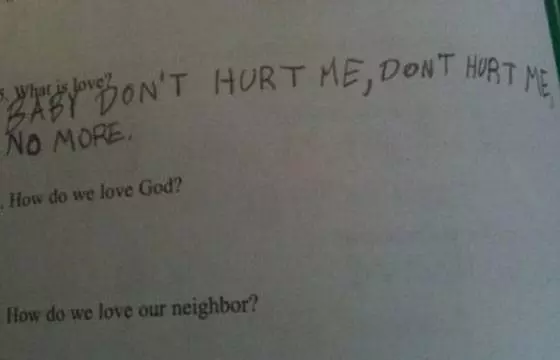 5. What is love?
BABY DON'T HURT ME, DON'T HURT ME,
NO MORE.
. How do we love God?
How do we love our neighbor?